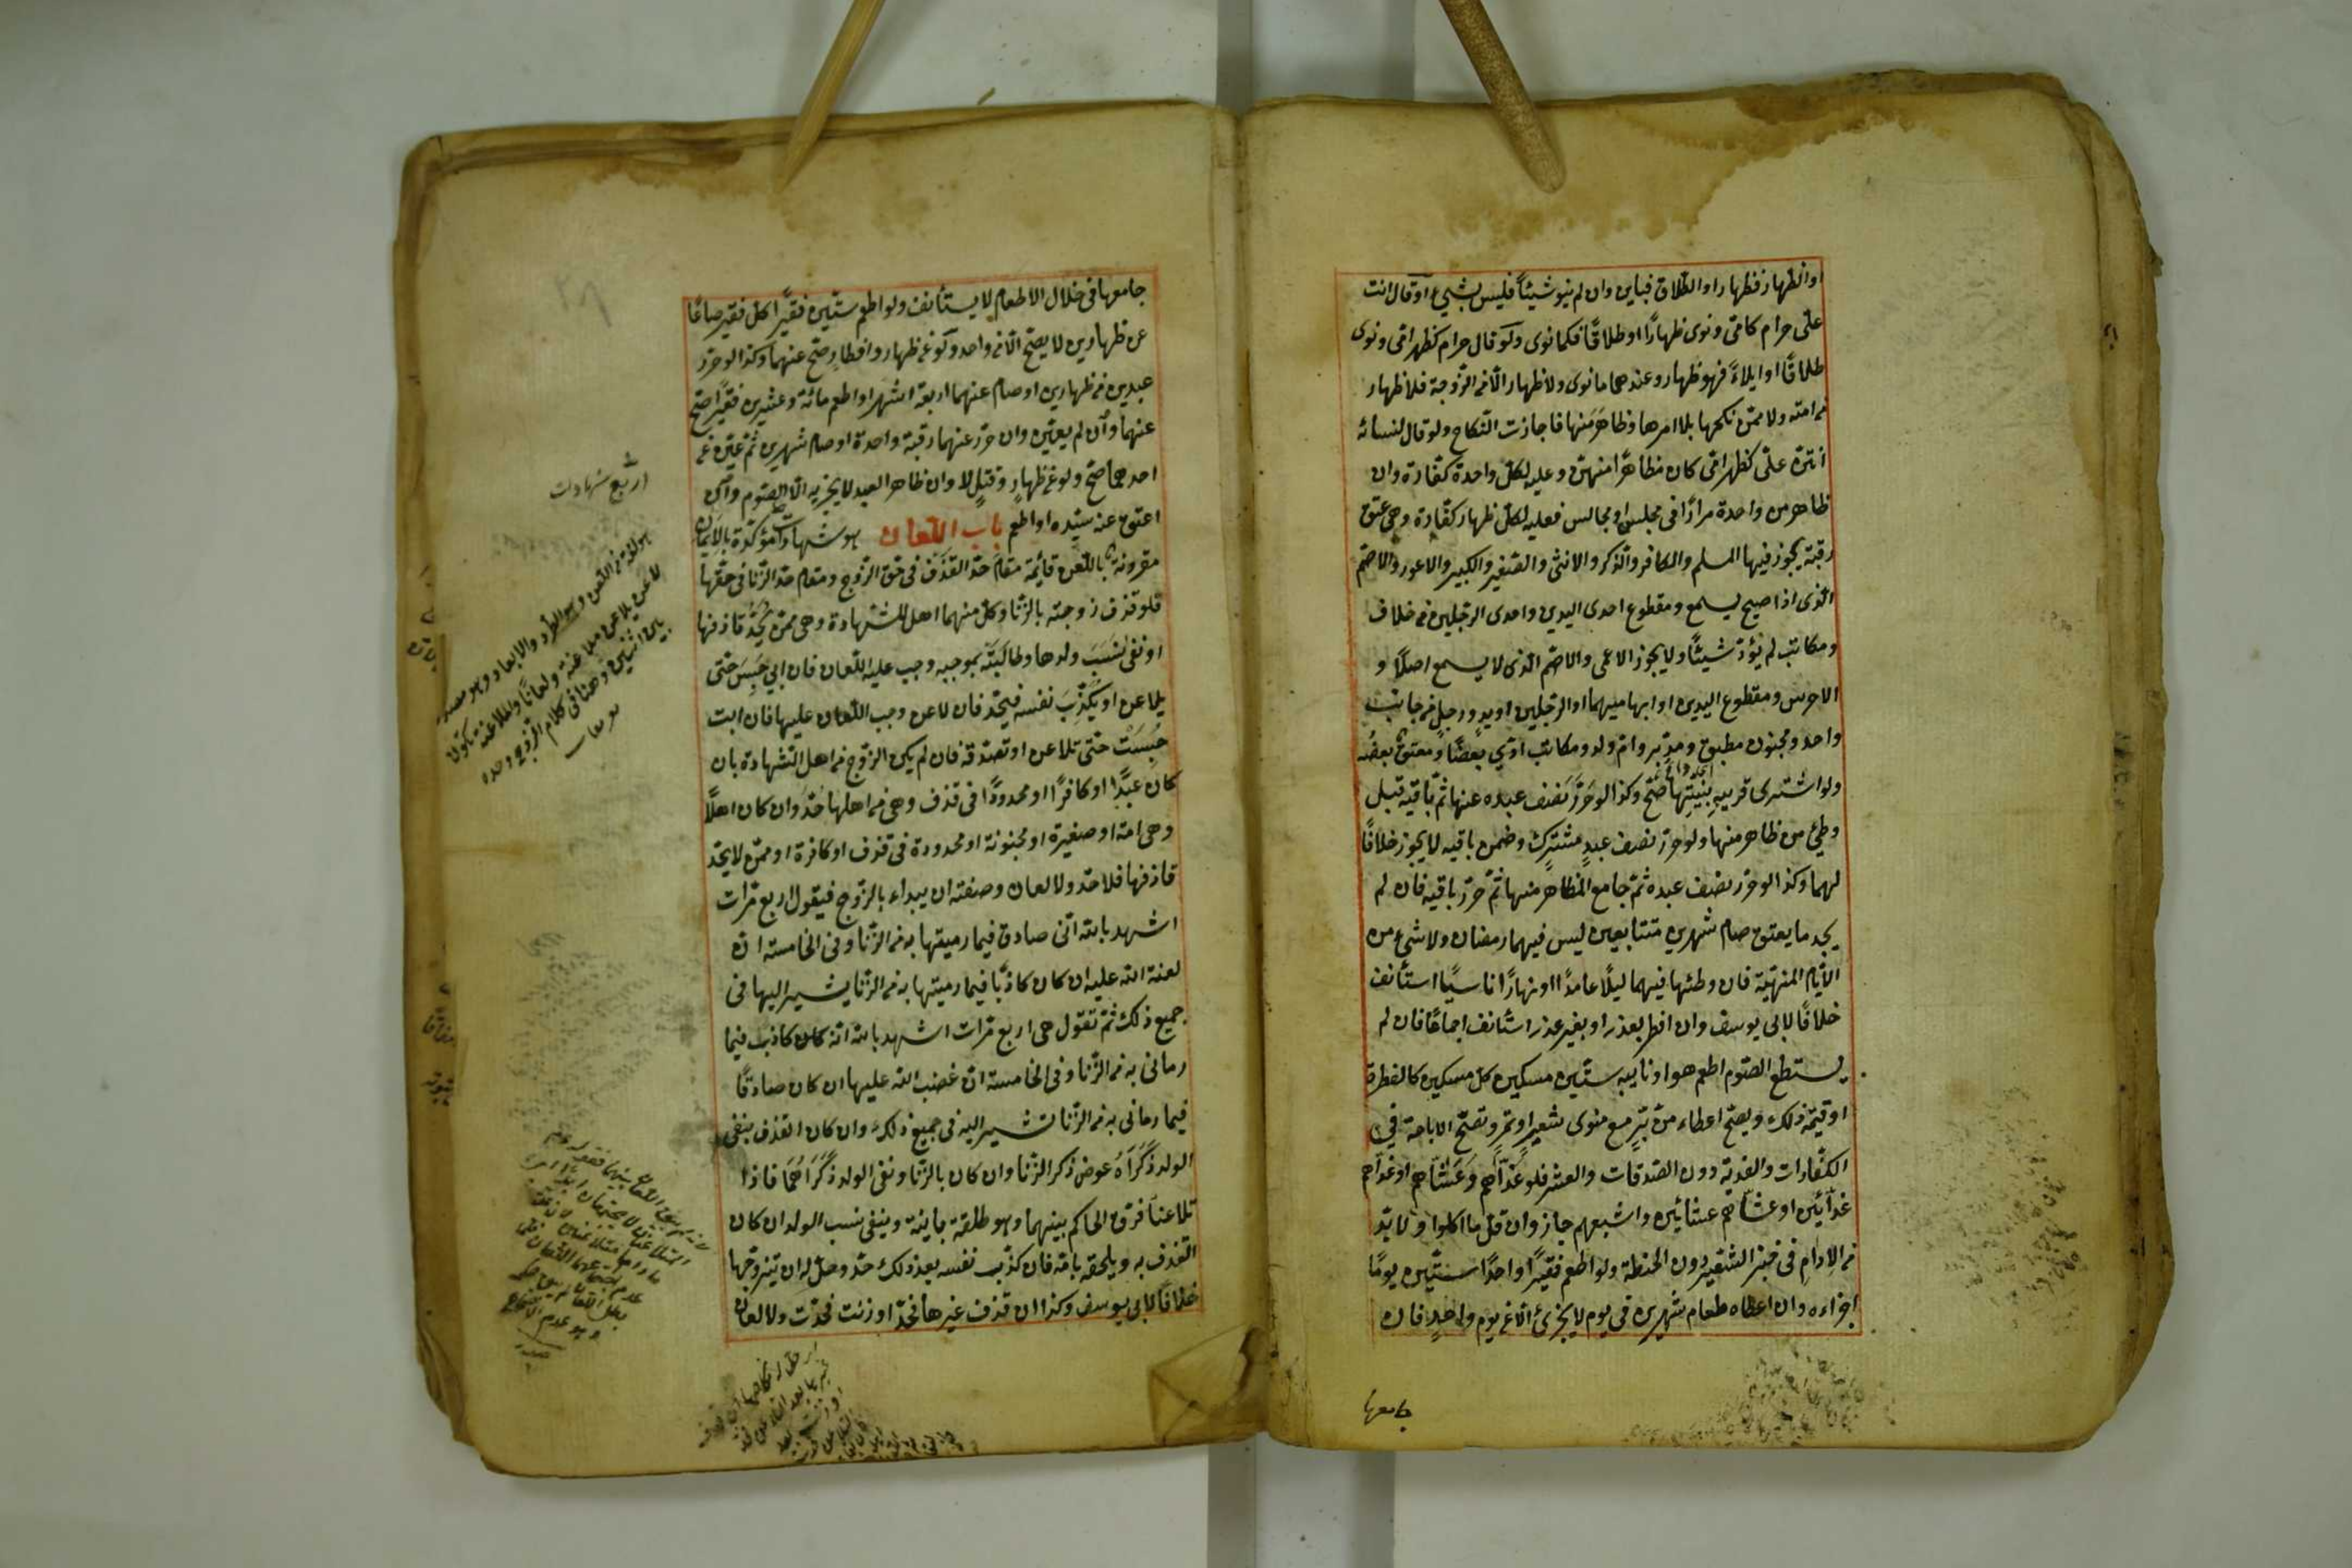 او الظهار فظهار او الطلاق فباين وان لم ينو شيئاً فليس بشيئ او قال انت
علىّ حرام كامّى ونوى ظهارًا او طلاقًا فكما نوى ولو قال حرام كظهر امّى ونوى
طلاقًا او ايلاءً فهو ظهار وعندهما ما نوى ولا ظهار الّا من الزّوجة فلا ظهار
من امته ولا ممّن نكحها بلا امرها وظاهَرَ منها فاجازت النّكاح ولو قال لنسائه
انتنّ علىّ كظهر امّى كان مظاهرًا منهنّ وعليه لكلّ واحدة كفّارة وان
ظاهر من واحدة مرارًا فى مجلس او مجالس فعليه لكلّ ظهار كفّارة وهى عتق
رقبة يجوز فيها المسلم والكافر والذّكر والانثى والصّغير والكبير والاعور والاصمّ
الّذى اذا صيح يسمع ومقطوع احدى اليدين واحدى الرّجلين من خلاف
ومكاتب لم يؤدّ شيئًا ولا يجوز الاعمى والاصّم الّذى لا يسمع اصلًا و
الاخرس ومقطوع اليدين او ابهاميهما او الرّجلين او يدٍ ورجلٍ من جانب
واحد ومجنون مطبق ومدبّر وامّ ولد ومكاتب ادّى بعضًا ومعتق بعضُه
ولو اشترى قريبه بنيّتِها صّح وكذا لو حَرَّرَ نصف عبده عنها ثمّ باقيه قبل
وطئ من ظاهر منها ولو حرّر نصف عبدٍ مشتركٍ وضمن باقيه لا يجوز خلافًا
لهما وكذا لو حرّر نصف عبده ثمّ جامع المظاهَر منها ثمّ حرّر باقيه فان لم
يجد ما يعتق صام شهرين متتابعين ليس فيهما رمضان ولا شئ من
الايّام المنهيّة فان وطئها فيهما ليلًا عامدًا او نهارًا ناسيًا استأنف
خلافًا لابى يوسف وان افطر بعذر او بغير عذر استأنف اجماعًا فان لم
يستطع الصّوم اطعم هو او نايبه ستّين مسكين كل مسكين كالفطرة
او قيمة ذلك ويصّح اعطاء منّ برّ مع منوى شعير او تمر وتصّح الاباحة فى
الكفّارات والفدية دون الصّدقات والعشر فلو غدّاهم وعشّاهم او غدّاهم
غدائين او عشاهم عشائين واشبعهم جاز وان قلّ ما اكلوا ولا بدّ
من الادام فى خبز الشّعير دون الحنطة ولو اطعم فقيرًا واحدًا ستّين يومًا
اجزاءه وان اعطاه طعام شهرين فى يوم لا يجزئ الّا عن يوم واحدٍ فان
جامعها
جامعها فى خلال الاطعام لا يستأنف ولو اطعم ستّين فقيرًا كلّ فقير صاعًا
عن ظهارين لا يصّح الّا عن واحد ولو عن ظهار وافطارٍ صّح عنهما وكذا لو حرّر
عبدين عن ظهارين او صام عنهما اربعة اشهر او اطعم مائة وعشرين فقيرًا صّح
عنهما وان لم يعيّن وان حرّر عنهما رقبة واحدة او صام شهرين ثمّ عيّن عن
احدهما صّح ولو عن ظهارٍ وقتلٍ لا وان ظاهر العبد لا يجزيه الّا الصّوم وان
اعتق عنه سيّده او اطعم باب اللّعان هو شهادات مؤكّدة بالايمان
مقرونة باللّعن قائمة مقام حدّ القذف فى حق الزّوج ومقام حدّ الزّنا فى حقّها
فلو قذف زوجته بالزّنا وكلّ منهما اهل للشّهادة وهى ممّن يُحَدّ قاذفها
او نفى نسَبَ ولدها وطالَبَتْه بموجبه وجب عليه اللّعان فان ابى حُبِسَ حتى
يلاعن او يكذّبَ نفسه فيحّد فان لاعن وجب اللّعان عليها فان ابت
حُبِسَتْ حتى تلاعن او تصدّقه فان لم يكن الزّوج من اهل الشّهادة بان
كان عبدًا او كافرًا او محدودًا فى قذف وهى من اهلها حُدّ وان كان اهلًا
وهى امة او صغيرة او مجنونة او محدودة فى قذف او كافرة او ممّن لا يحدّ
قاذفها فلا حدّ ولا لعان وصفته ان يبداء بالزّوج فيقول اربع مرّات
اشهد بالله انّى صادق فيما رميتها به من الزّنا وفى الخامسة انّ
لعنة الله عليه ان كان كاذبًا فيما رميتها به من الزّنا يشير اليها فى
جميع ذلك ثمّ تقول هى اربع مرّات اشهد بالله انّه كان كاذب فيما
رمانى به من الزّنا وفى الخامسة انّ غضب الله عليها ان كان صادقًا
فيما رمانى به من الزّنا تشير اليه فى جميع ذلك وان كان القذف بنفى
الولد ذكَرَاهُ عوض ذكر الزّنا وان كان بالزّنا ونفى الولد ذكَرَاهُمَا فاذا
تلاعنا فرّق الحاكم بينهما وهو طلقة باينة وينفى نسب الولد ان كان
القذف به ويلحقه بامّه فان كذّب نفسه بعد ذلك حدّ وحلّ له ان يتزوّجها
خلافًا لابى يوسف وكذا ان قذف غيرها فحدّ او زنت فحدّت ولا لعان
اربع شهادات
هو لغة من اللّعن وهو الطّرد والابعاد وهو مصدر
لاعن يلاعن ملاعنة ولعانًا والملاعنة تكون
بين اثنين وهنا فى كلام الزّوج وحده